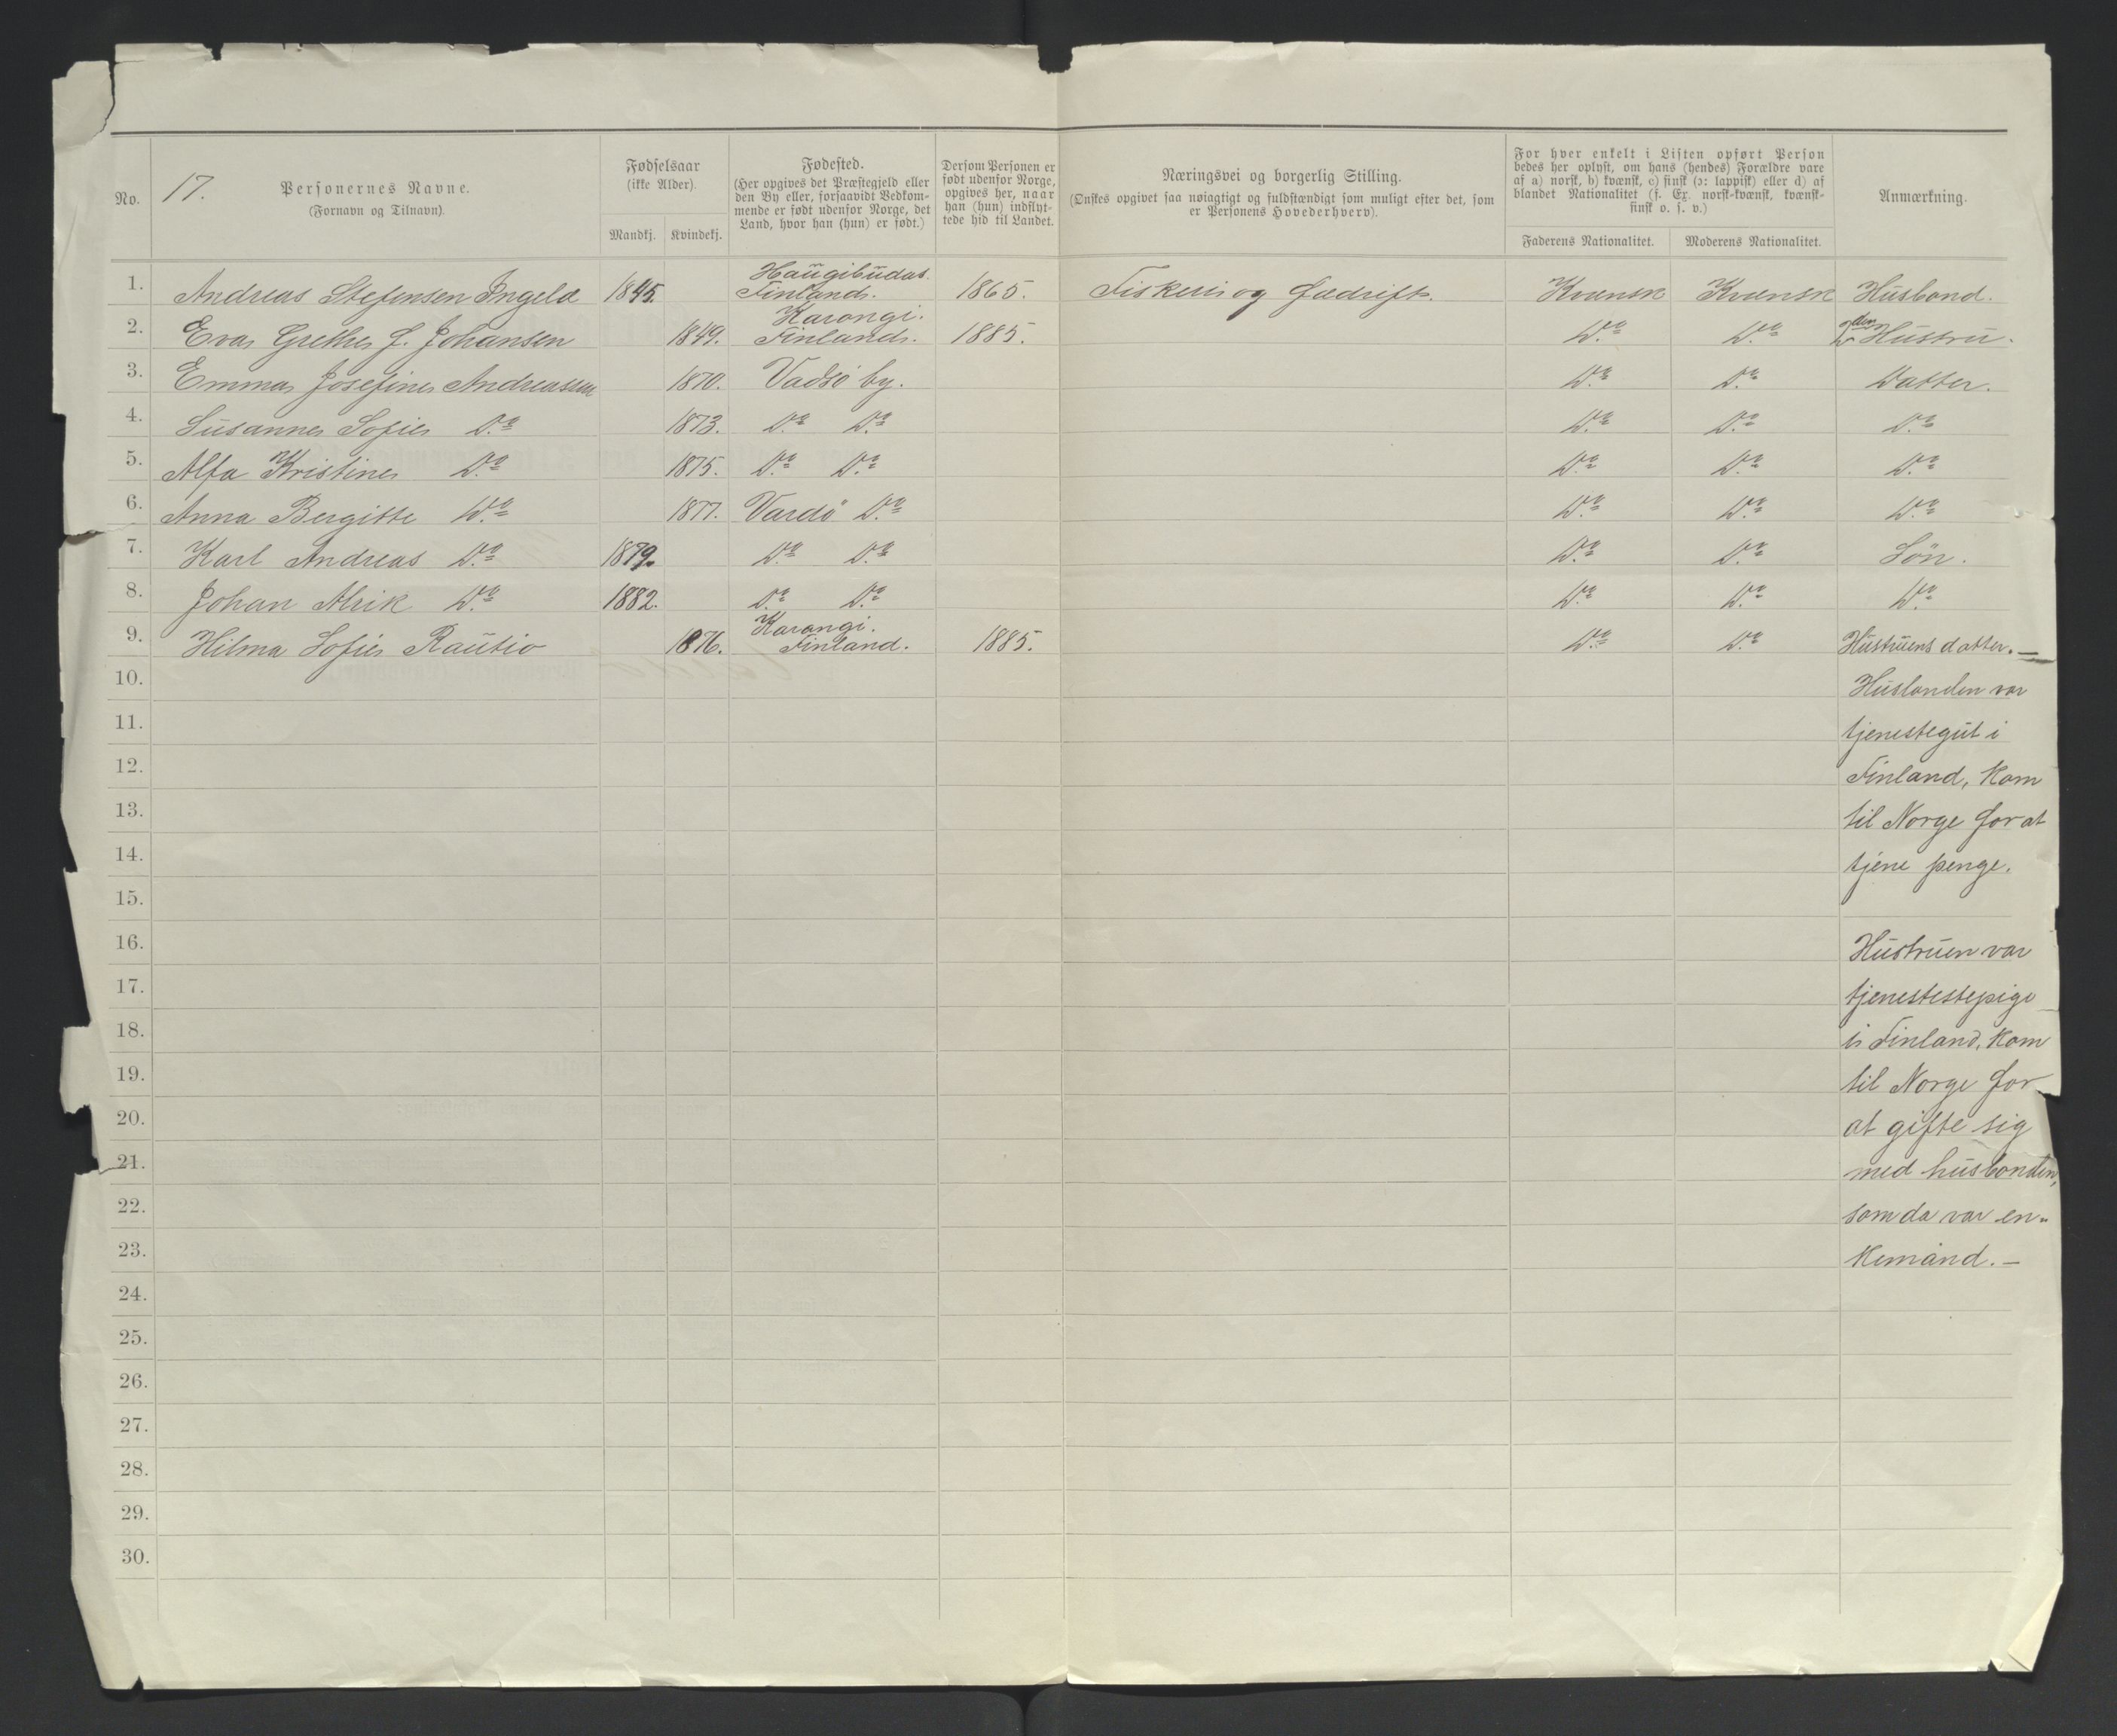 No.
17.
Personernes Navne.
(Fornavn og Tilnavn).
Fødselsaar
(ikke Alder).
Mandkj. Kvindekj.
Fødested.
(Her opgives det Præstegjeld eller
den By eller, forsaavidt Vedkom-
mende er født udenfor Norge, det
Land, hvor han (hun) er født.)
Dersom Personen er
født udenfor Norge,
opgives her, naar
han (hun) indflyt-
tede hid til Landet.
Næringsvei og borgerlig Stilling.
(Ønskes opgivet saa nøiagtigt og fuldstændigt som muligt efter det, som
er Personens Hovederhverv).
For hver enkelt i Listen opført Person
bedes her oplyst, om hans (hendes) Forældre vare
af a) norsk, b) kvænsk, c) finsk (ɔ: lappisk) eller d) af
blandet Nationalitet (f. Ex. norsk-kvænsk, kvænsk-
finsk o. s. v.)
Faderens Nationalitet. Moderens Nationalitet.
Anmærkning.
Haugibudas
1. Andreas Stefensen 1845. Finland. 1865. Fiskeri og fædrift. Kvensk Kvensk Husbond.
Karongi.
2. Eva Grethe J. Johansen 1849. Finland. 1885. Do Do 2den Hustru.
3. Emma Josefine Andreassen 1870. Vadsö by. Do Do Datter.
4. Susanne Sofie Do 1873. Do Do Do Do Do
5. Alfa Kristine Do 1875. Do Do Do Do Do
6. Anna Bergitte Do 1877. Vardö Do Do Do Do
7. Karl Andreas Do 1879. Do Do Do Do Sön.
8. Johan Alrik Do 1882. Do Do Do Do Do
Karangi.
9. Hilma Sofie Rautio 1876. Finland. 1885. Do Do Hustruens datter.—
10. Husbonden var
11. tjenestegut i
12. Finland, kom
13. til Norge for at
14. tjene penge.
15.
16. Hustruen var
17. tjenestestepige
18. i Finland, kom
19. til Norge for
20. at gifte sig
21. med husbonden,
22. som da var en-
23. kemand.—
24.
25.
26.
27.
28.
29.
30.